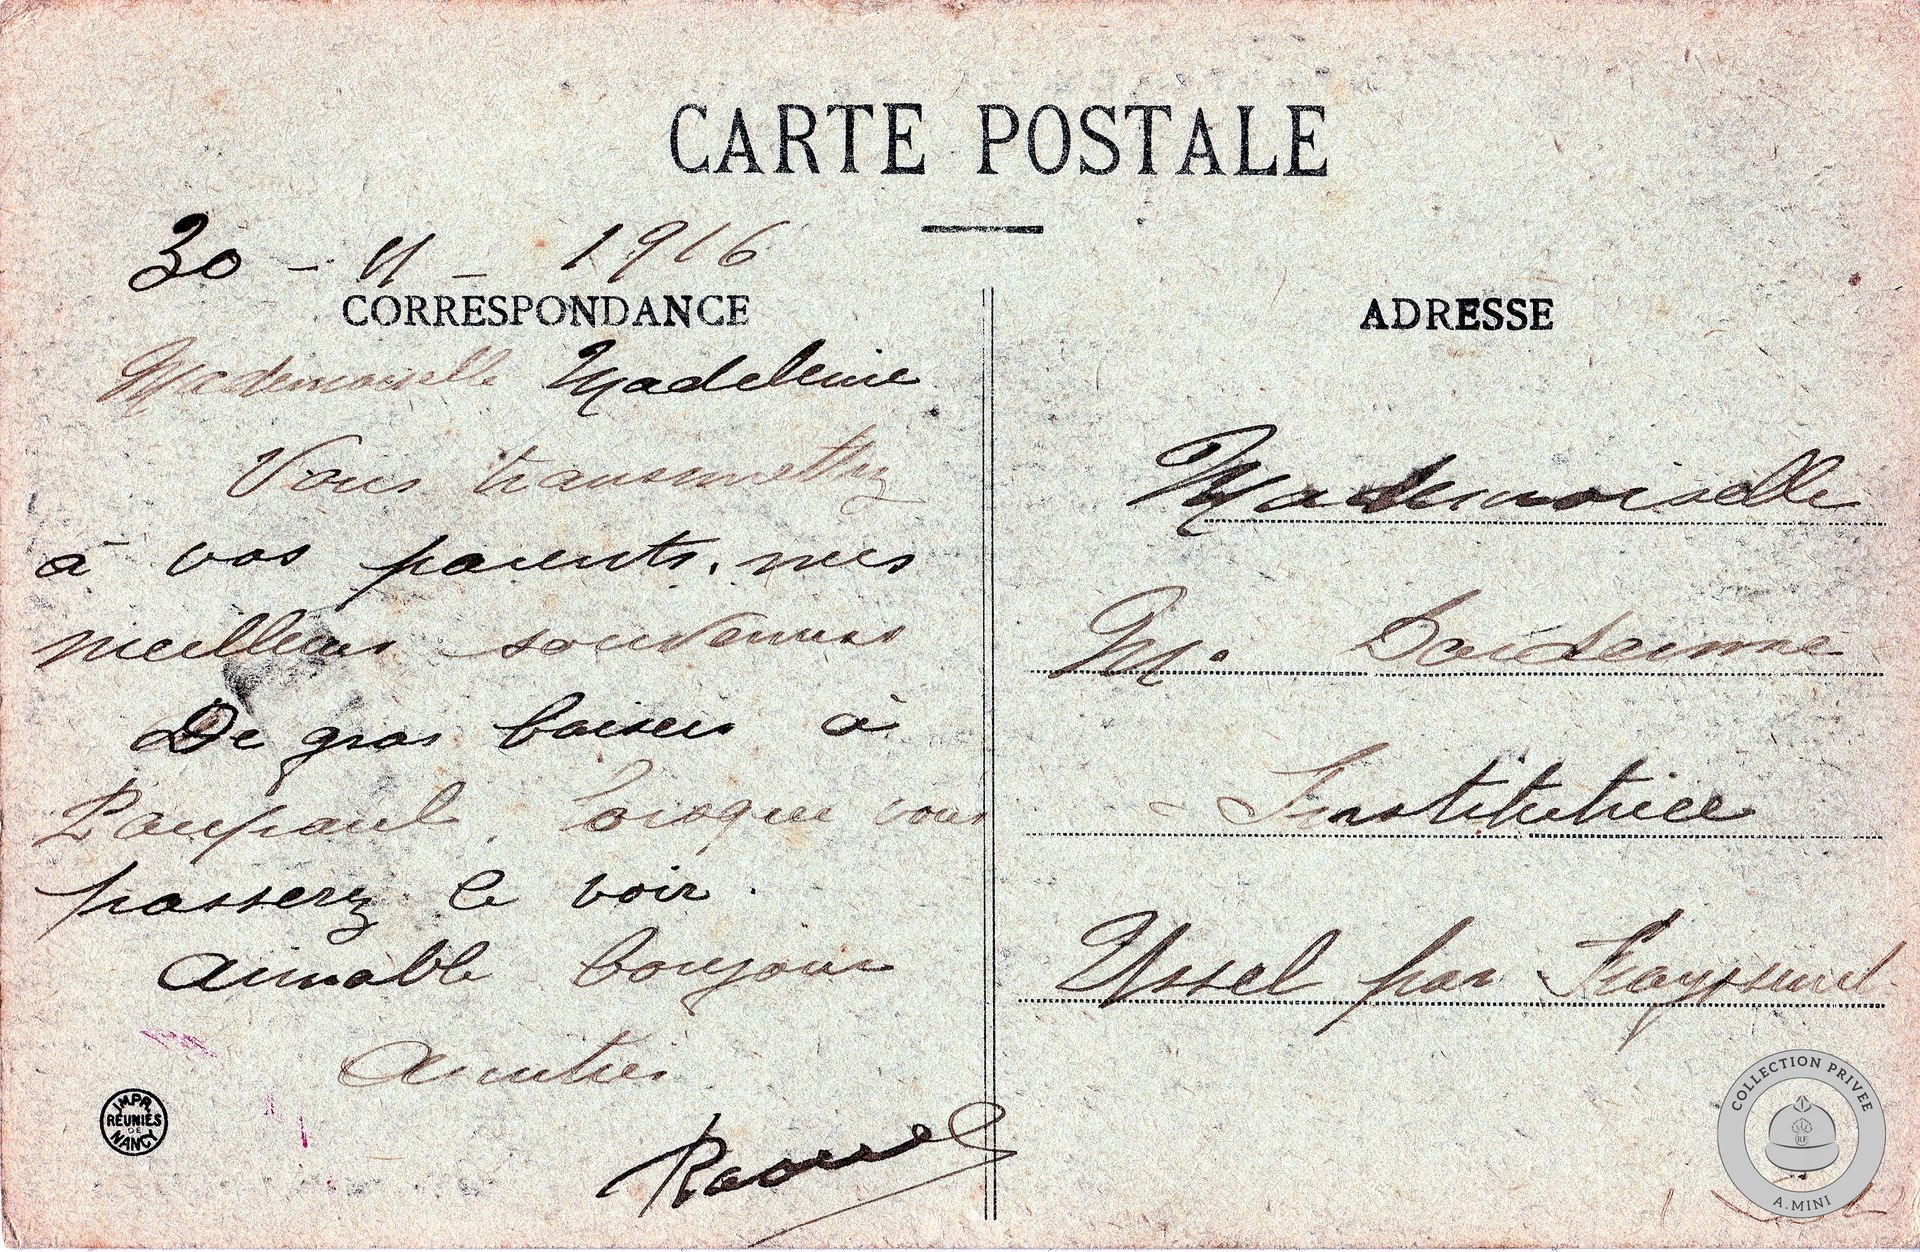 CARTE POSTALE
30 - 11 - 1916
CORRESPONDANCE
Mademoiselle Madeleine
Vous transmettrez
à vos parents, mes
meilleurs souvenirs
De gros baisers à
lorsque vous
passerez le voir.
Aimable bonjour
Amitiés.
Raoul
IMPR.
RÉUNIES
DE
NANCY
ADRESSE
Mademoiselle
M.
Institutrice
Ussel par
COLLECTION PRIVEE
RF
A.MINI